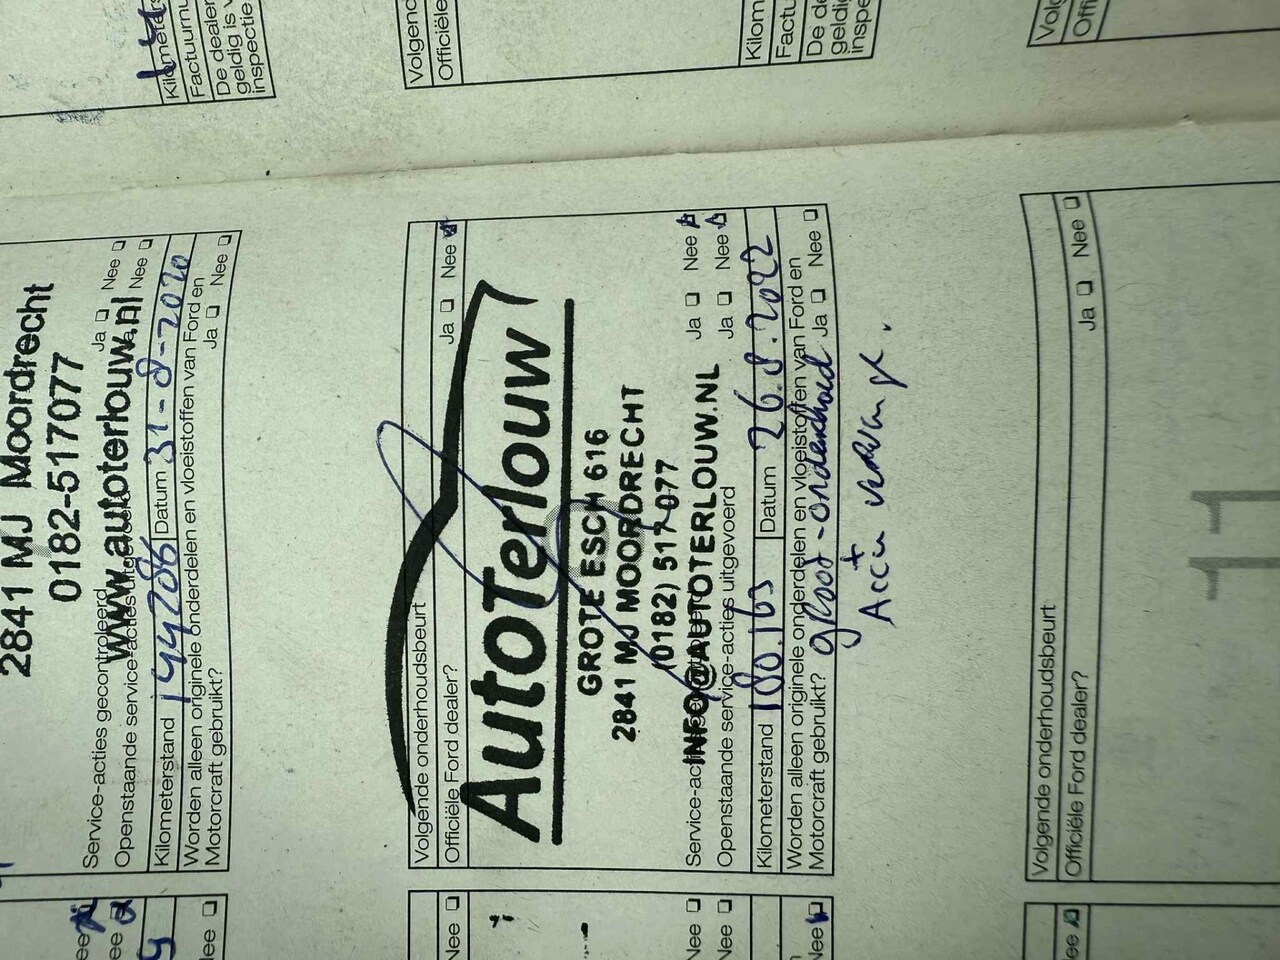 Kilometers
Factuurnu
De dealer
geldig is v
inspectie
Volgend
Officiële
Kilom
Factu
De de
geldig
inspe
Volg
Offi
2841 MJ Moordrecht
0182-517077
www.autoterlouw.nl
Service-acties gecontroleerd Ja Nee
Openstaande service-acties uitgevoerd Ja Nee
Kilometerstand 144286 Datum 31-8-2020
Worden alleen originele onderdelen en vloeistoffen van Ford en
Motorcraft gebruikt? Ja Nee
Volgende onderhoudsbeurt
Officiële Ford dealer? Ja Nee
AutoTerlouw
GROTE ESCH 616
2841 MJ MOORDRECHT
(0182) 517 077
INFO@AUTOTERLOUW.NL
Service-acti Ja Nee
Openstaande service-acties uitgevoerd Ja Nee
Kilometerstand 180.163 Datum 26.8.2022
Worden alleen originele onderdelen en vloeistoffen van Ford en
Motorcraft gebruikt? Ja Nee
groot-onderhoud
+
Accu
Volgende onderhoudsbeurt
Officiële Ford dealer? Ja Nee
11
ee
ee
Nee
Nee
Nee
Nee
Nee
ee